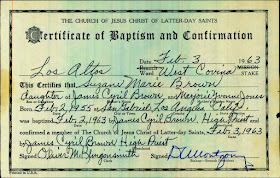 THE CHURCH OF JESUS CHRIST OF LATTER-DAY SAINTS
Certificate of Baptism and Confirmation
Feb. 3, 1963
Los Altos Ward West Covina Stake
This Certifies that Suzane Marie Brown
daughter of James Cyril Brown and Marjorie Ivonne Jones
Born Feb 2, 1955 at San Gabriel Los Angeles Calif
was baptized Feb 2, 1963 by James Cyril Brown High Priest and
confirmed a member of The Church of Jesus Christ of Latter-day Saints, Feb 3, 1963
by James Cyril Brown High Priest
Signed Signed
Printed in U.S.A.